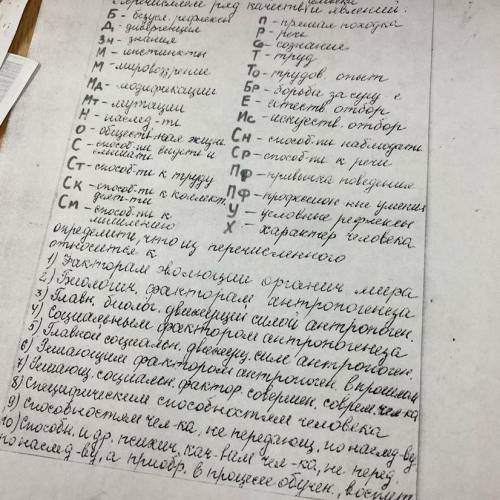 Перечислен ряд качеств и явлений:
Б - безусл. рефлексы
Д - дивергенция
Зн - знания
И - инстинкты
М - мировоззрение
Мд - модификации
Мт - мутации
Н - наслед-ть
О - общественная жизнь
С - способ-ти видеть и слышать
Ст - способ-ти к труду
Ск - способ-ти к коллект. деят-ти
См - способ-ти к мышлению
П - прямая походка
Р - речь
Со - сознание
Т - труд
То - трудов. опыт
Бр - борьба за сущ. е
Е - естеств. отбор
Ис - искуств. отбор
Сн - способ-ти наблюдать
Ср - способ-ти к речи
Пр - привычка поведения
Пф - професион-ные умения
У - условные рефлексы
Х - характер человека
определить, что из перечисленного
относится к
1) Факторам эволюции органич. мира
2) Биологич. факторам антропогенеза
3) Главн. биолог. движущей силой антропоген.
4) Социальным фактором антропогенеза
5) Главной социальн. движущ. силе антропоген.
6) Решающим фактором антропоген. в прошлом
7) Решающ. социальн. фактор. совершен. соврем. чел-ка
8) Специфическим способностям человека
9) Способностям чел-ка, не передающ. по наслед-ву
10) Способн. и др. психич. кач-вам чел-ка, не перед.
по наслед-ву, а приобр. в процессе обучен., воспит.